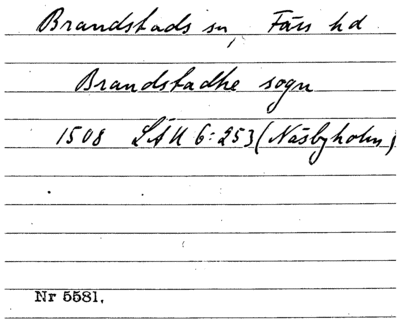 Brandstads sn, Färs hd
Brandstadhe sogn
1508 LÄU 6:253 (Näsbyholm)
Nr 5581.